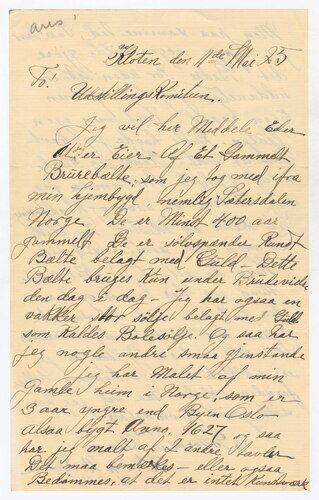 ans!
Kloten den 11de Mai 25
To!
Udstillings Komitien.
Jeg vil her Meddele Eder
at er Eier Af Et Gammelt
Brurebælte, som jeg tog med ifra
min hjembygd, nemlig Sætersdalen
Norge. De er Minst 400 aar
gammelt De er solvspænder Rundt
Bælte belagt med Guld - Dette
Bælte bruges Kun under Brudevielse
den dag i dag - jeg har ogsaa en
vakker stor sölje belagt med Guld
som Kaldes Bolesölje. Og saa har
jeg nogle andre smaa gjenstande
jeg har Malet af min
gamle heim i Norge, som er
3 aar yngre end Byen Oslo
alsaa bygt Anno. 1627 og saa
har jeg malt af 2 andre tavler
Det maa bemærkes - eller ogsaa
Bedömmes, at det er intet Kunstværk